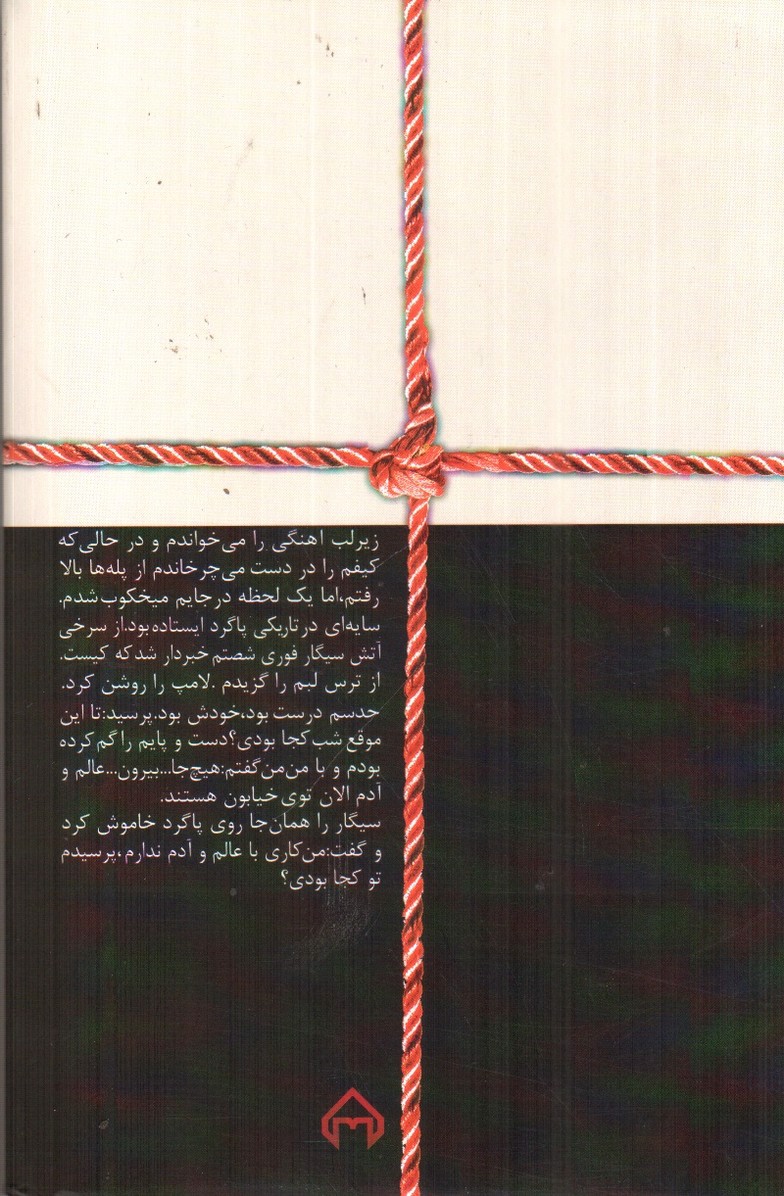 زیرلب آهنگی را می‌خواندم و در حالی‌که
کیفم را در دست می‌چرخاندم از پله‌ها بالا
رفتم،اما یک لحظه درجایم میخکوب‌شدم.
سایه‌ای درتاریکی پاگرد ایستاده‌بود.از سرخی
آتش سیگار فوری شصتم خبردار شدکه کیست.
از ترس لبم را گزیدم .لامپ را روشن کرد.
حدسم درست بود،خودش بود.پرسید:تا این
موقع شب کجا بودی؟دست و پایم راگم‌کرده
بودم و با من‌من‌گفتم:هیچ‌جا...بیرون...عالم و
آدم الان توی خیابون هستند.
سیگار را همان‌جا روی پاگرد خاموش کرد
و گفت:من‌کاری با عالم و آدم ندارم،پرسیدم
تو کجا بودی؟